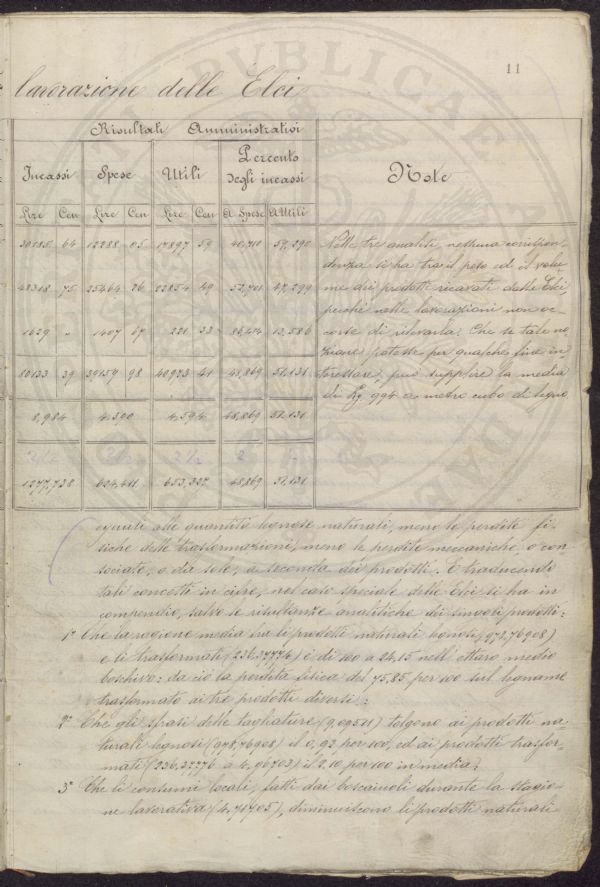 11
lavorazione delle Elci
Risultati Amministrativi
Incassi Spese Utili Percento degli incassi Note
Lire Cen Lire Cen Lire Cen A Spese A Utili
30185 64 12288 05 17897 59 40,710 59,290
48318 75 25464 26 22854 49 52,701 47,299
1629 " 1407 67 221 33 86,414 13,586
80133 39 39159 98 40973 41 48,869 51,131
8,984 4,390 4,594 48,869 51,131
1277,738 624,411 653,327 48,869 51,131
Nelle tre analisi, nessuna corrispon-
denza si ha tra il peso ed il volu-
me dei prodotti ricavati dalle Elci,
perché nelle lavorazioni non oc-
corse di rilevarla. Che se tale no-
zione potesse per qualche fine in-
teressare, può supplire la media
di Kg. 994 a metro cubo di legno.
eguali alle quantità legnose naturali, meno le perdite fi-
siche della trasformazione, meno le perdite meccaniche, o con-
sociate, o da sole, a seconda dei prodotti. E traducendo
tali concetti in cifre, nel caso speciale delle Elci si ha in
compendio, salvo le risultanze analitiche di singoli prodotti:
1° Che la ragione media tra li prodotti naturali legnosi (978,76908)
e li trasformati (236,37776) è di 100 a 24,15 nell'ettaro medio
boschivo: da ciò la perdita fisica del 75,85 per 100 sul legname
trasformato ai tre prodotti diversi:
2° Che gli sfrasi delle tagliature (9,09521) tolgono ai prodotti na-
turali legnosi (978,76908) il 0,93 per 100, ed ai prodotti trasfor-
mati (236,37776 a 4,96703) il 2,10 per 100 in media:
3° Che li consumi locali, fatti dai boscaiuoli durante la stagio-
ne lavorativa (4,71705), diminuiscono li prodotti naturali